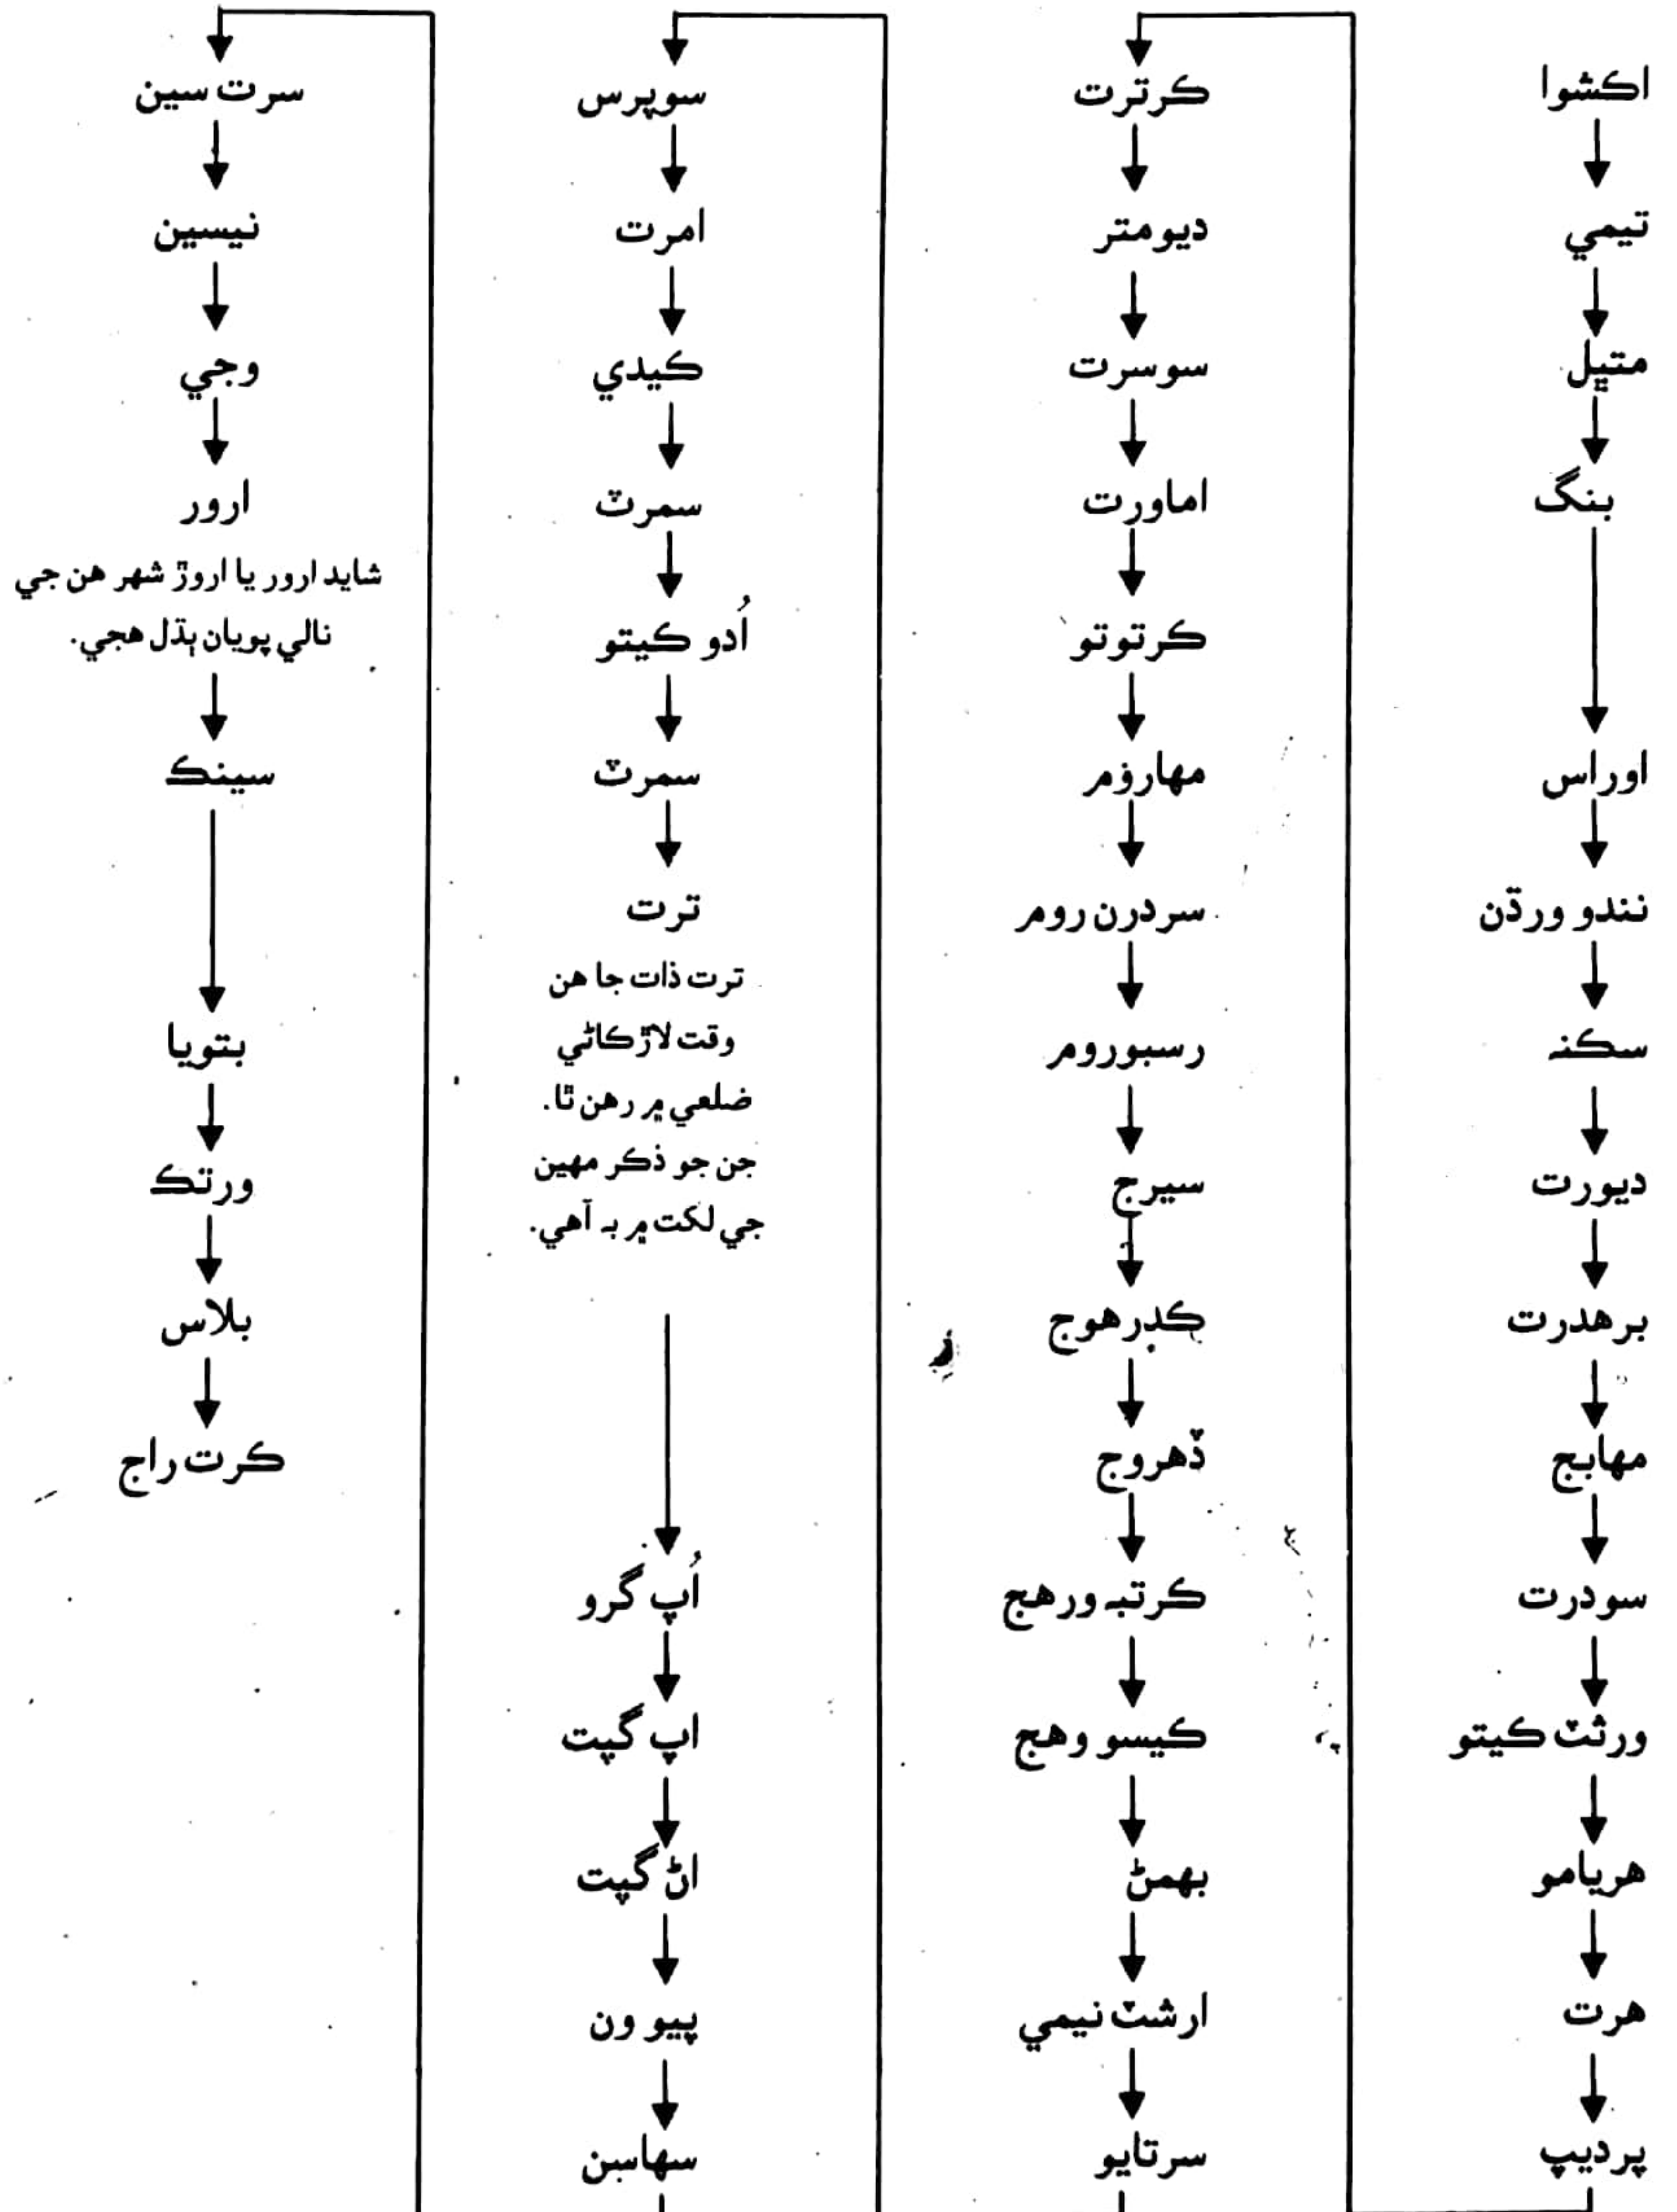 اکشوا
تيمي
متيل
بنگ
اوراس
نندو ورڌن
سکنہ
ديورت
برهدرت
مهابج
سودرت
ورشٽ ڪيتو
هريامو
هرت
پرديپ
ڪرترت
ديومتر
سوسرت
اماورت
ڪرتوتو
مهارؤم
سردرن روم
رسبوروم
سيرج
ڊهروج
ڪرتبہ ورهج
ڪيسو وهج
بهمڻ
ارشٽ نيمي
سرتايو
سوپرس
امرت
ڪيدي
سمرٽ
اُدو ڪيتو
سمرٽ
ترت
ترت ذات جا هن
وقت لاڙڪاڻي
ضلعي ۾ رهن ٿا.
جن جو ذڪر مهين
جي لکت ۾ بہ آهي.
اُپ گرو
اپ گپت
اڻ گپت
پيو ون
سهاسٻن
سرت سين
نيسين
وجي
ارور
شايد ارور يا اروڙ شهر هن جي
نالي پويان ٻڌل هجي.
سينڪ
بتويا
ورتڪ
بلاس
ڪرت راج